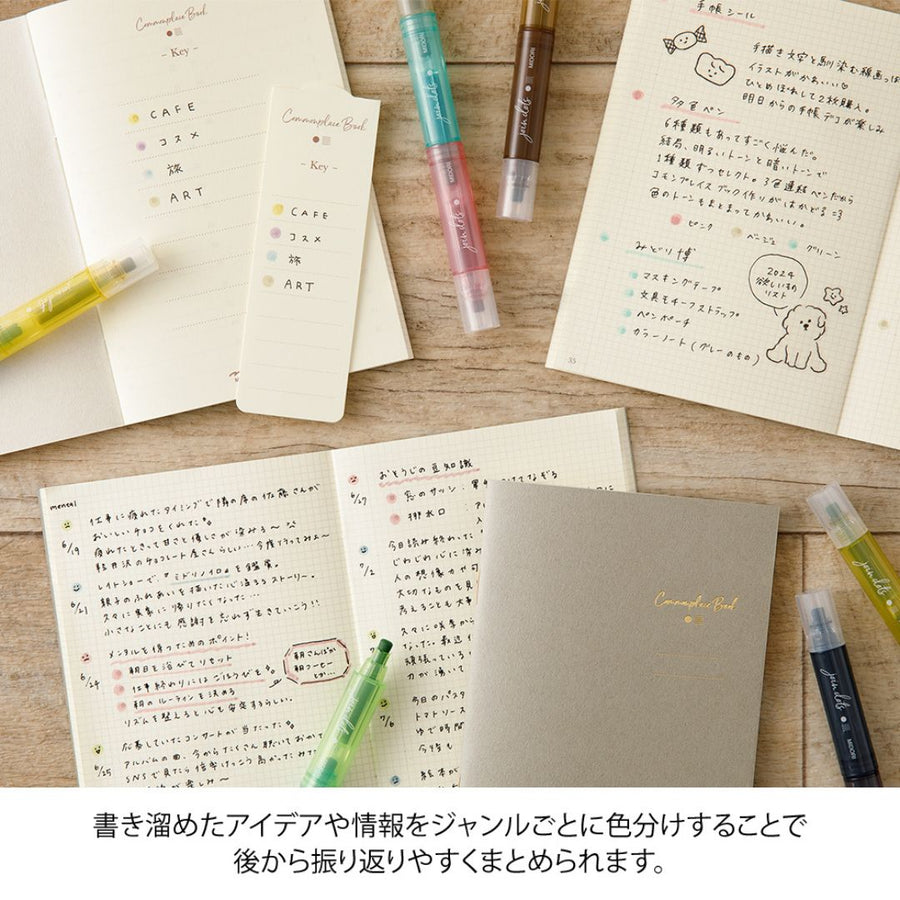 Commonplace Book
- Key -
CAFE
コスメ
旅
ART
Commonplace Book
- Key -
CAFE
コスメ
旅
ART
join dots
MIDORI
join dots
MIDORI
join dots
MIDORI
手帳シール
手描き文字と馴染む線画っぽ
イラストがかわいい♡
ひとめぼれして2枚購入。
明日からの手帳デコが楽しみ
夕色ペン
6種類もあってすごく悩んだ。
結局、明るいトーンと暗いトーンで
1種類ずつセレクト。3色連結ペンだから
コモンプレイスブック作りがはかどる =3
色のトーンもまとまってかわいい。
ピンク
ベージュ
グリーン
みどり博
マスキングテープ
文具モチーフストラップ
ペンポーチ
カラーノート(グレーのもの)
2024
欲しいもの
リスト
35
mental
6/19
仕事に疲れたタイミングで隣の席の佐藤さんが
おいしいチョコをくれた
疲れたときって甘さと優しさが染みる〜
軽井沢のチョコレート屋さんらしい…今度行ってみよ〜
6/21
レイトショーで『ミドリノイロ』を鑑賞。
親子のふれあいを描いた心温まるストーリー。
久々に実家に帰りたくなった…
小さなことにも感謝を忘れず生きていこう!!
6/24
メンタルを保つためのポイント!
朝日を浴びてリセット
仕事終わりにはごほうびを
朝のルーティンを決める
リズムを整えると心も安定するらしい。
朝さんぽか
朝コーヒー
とか…
6/25
応募していたコンサートが当たった
アルバムの曲、今からたくさん聴いておかな
SNSで見たら倍率けっこう高かったみた
が楽しみ〜
おそうじの豆知識
6/27
窓のサッシ:
排水口:
7/2
今日読み終わった
じわじわ心に染み
人の想像力や
大切なものを見
考えることも大事
久々に咲季から
なった。最近
頑張っている
力が湧いて
7/6
今日のパスタ
トマトソース
ゆで時間
今後も
絵本が
Commonplace Book
join dots
join dots
MIDORI
join dots
書き溜めたアイデアや情報をジャンルごとに色分けすることで
後から振り返りやすくまとめられます。